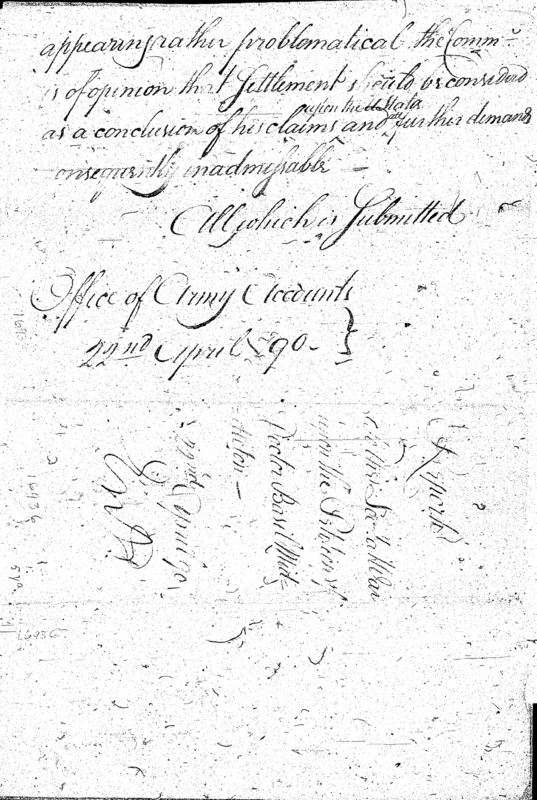 appearing rather problematical the Commr
is of opinion that Settlement should be considered
upon the State
as a conclusion of his claims and further demands
consequently inadmissable —
All which is Submitted
Office of Army Accounts
22nd April 90 — }
Report
upon the Petition of
Doctor Basil Mid=
dleton —
22nd
16936
16936